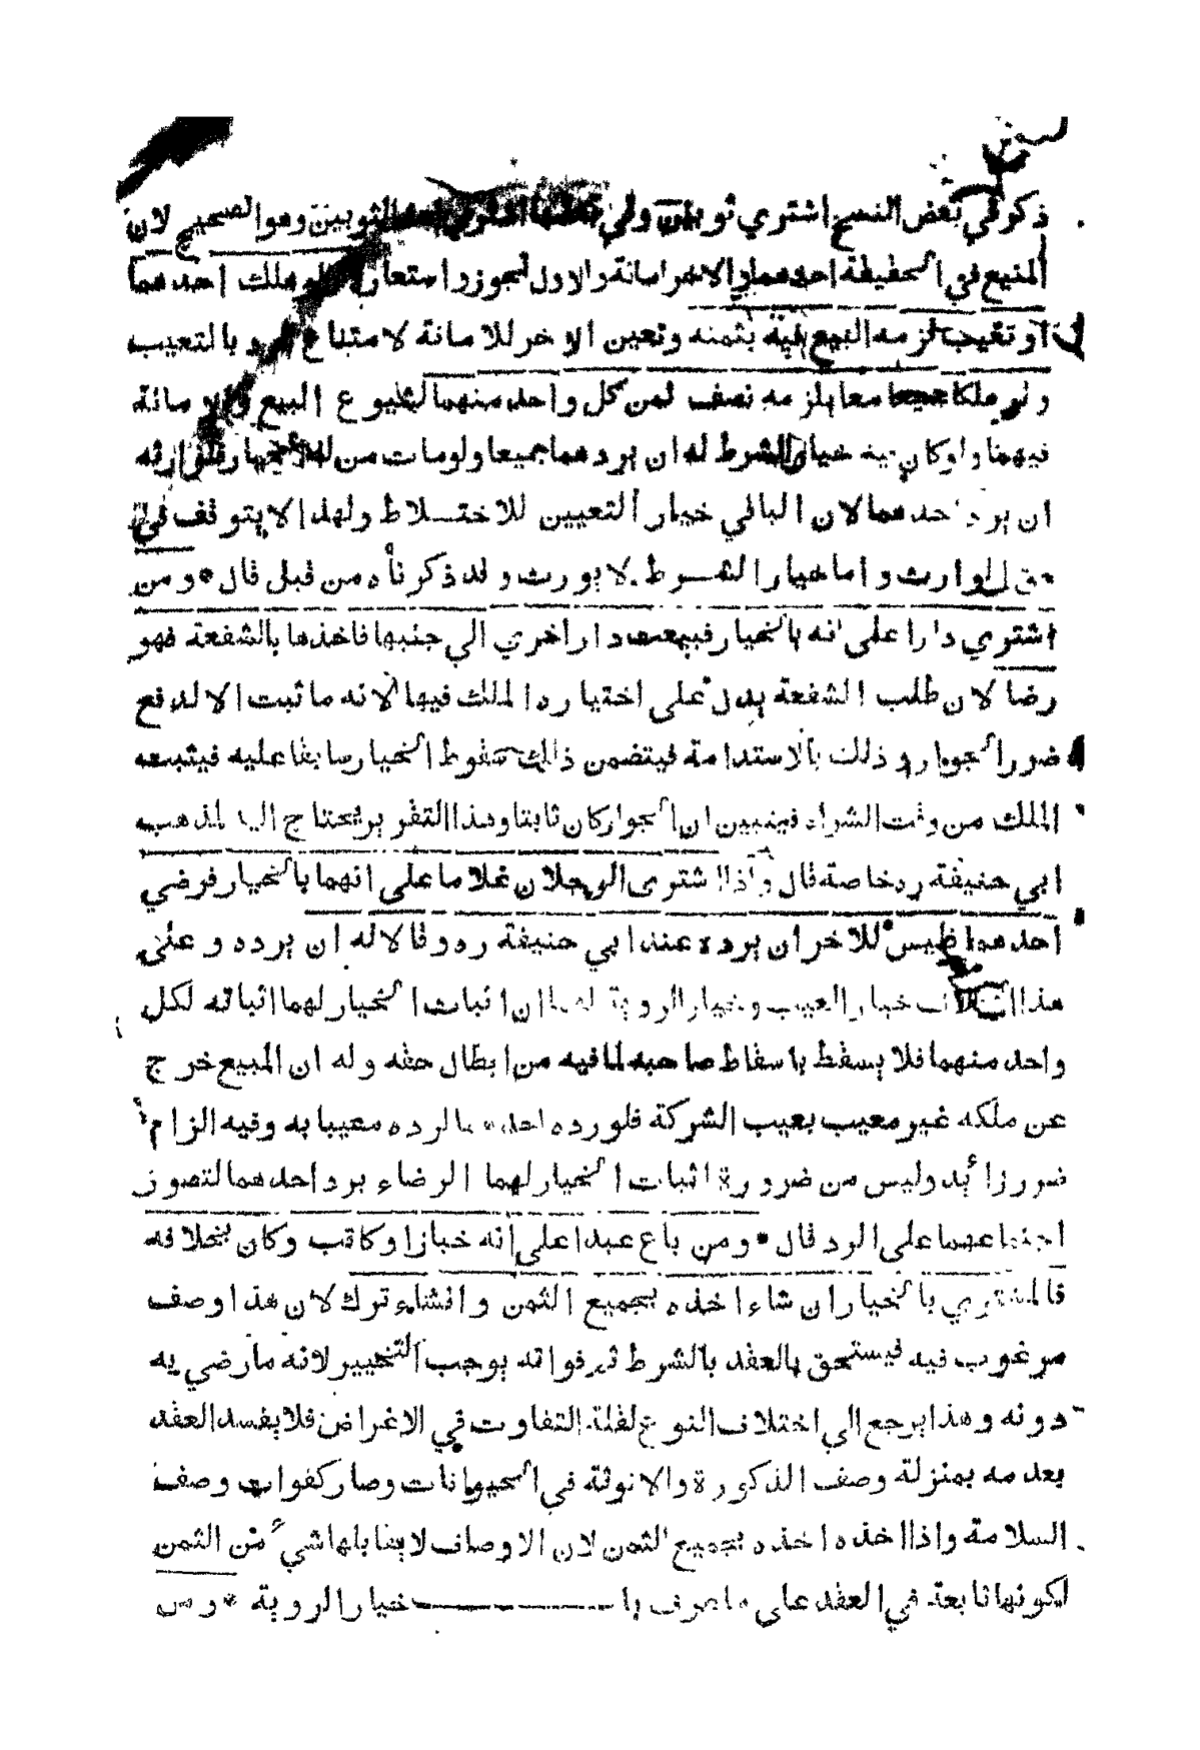 ذكر في بعض النسخ اشترى ثوبين وفي بعضها اشترى احد الثوبين وهو الصحيح لان
المبيع في الحقيقة احدهما والاخر امانة والاول تجوز واستعارة ولو هلك احدهما
او تعيب لزمه البيع فيه بثمنه وتعين الاخر للامانة لامتناع الرد بالتعيب
ولو هلكا جميعا معا يلزمه نصف ثمن كل واحد منهما لشيوع البيع والامانة
فيهما ولو كان فيه خيار الشرط له ان يردهما جميعا ولو مات من له الخيار فلوارثه
ان يرد احدهما لان الباقي خيار التعيين للاختلاط ولهذا لا يتوقف في
حق الوارث واما خيار الشرط لا يورث وقد ذكرناه من قبل قال * ومن
اشترى دارا على انه بالخيار فبيعت دار اخرى الى جنبها فاخذها بالشفعة فهو
رضا لان طلب الشفعة يدل على اختياره الملك فيها لانه ما ثبت الا لدفع
ضرر الجوار وذلك بالاستدامة فيتضمن ذلك سقوط الخيار سابقا عليه فيثبت
الملك من وقت الشراء فيتبين ان الجوار كان ثابتا وهذا التقرير يحتاج اليه لمذهب
ابي حنيفة ره خاصة قال واذا اشترى الرجلان غلاما على انهما بالخيار فرضي
احدهما فليس للاخر ان يرده عند ابي حنيفة ره وقالا له ان يرده وعلى
هذا الخلاف خيار العيب وخيار الروية لهما ان اثبات الخيار لهما اثباته لكل
واحد منهما فلا يسقط باسقاط صاحبه لما فيه من ابطال حقه وله ان المبيع خرج
عن ملكه غير معيب بعيب الشركة فلو رده احدهما لرده معيبا به وفيه الزام
ضرر زائد وليس من ضرورة اثبات الخيار لهما الرضاء برد احدهما لتصور
اجتماعهما على الرد قال * ومن باع عبدا على انه خباز او كاتب وكان بخلافه
فالمشتري بالخيار ان شاء اخذه بجميع الثمن وان شاء ترك لان هذا وصف
مرغوب فيه فيستحق بالعقد بالشرط ثم فواته يوجب التخيير لانه ما رضي به
دونه وهذا يرجع الى اختلاف النوع لقلة التفاوت في الاغراض فلا يفسد العقد
بعدمه بمنزلة وصف الذكورة والانوثة في الحيوانات وصار كفوات وصف
السلامة واذا اخذه اخذه بجميع الثمن لان الاوصاف لا يقابلها شيء من الثمن
لكونها تابعة في العقد على ما عرف باب خيار الروية * ومن